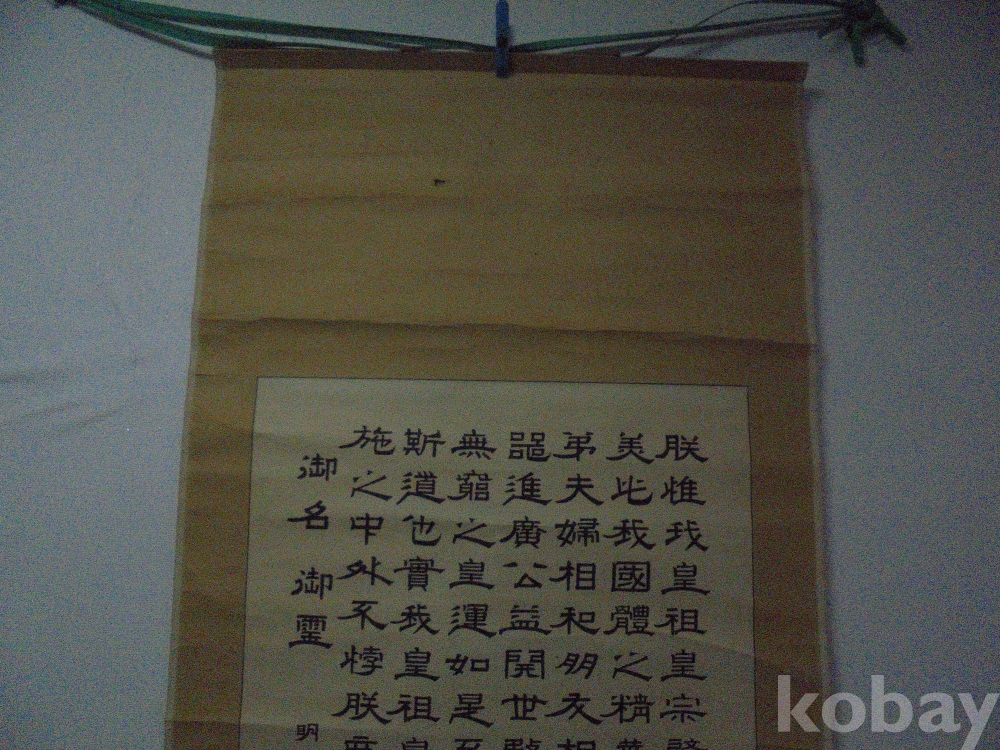 朕惟我皇祖皇宗
美此我國體之精華
弟夫婦相和朋友相
器進廣公益開世務
無窮之皇運如是不
斯道也實我皇祖皇
施之中外不悖朕庶
御名 御璽
明
kobay